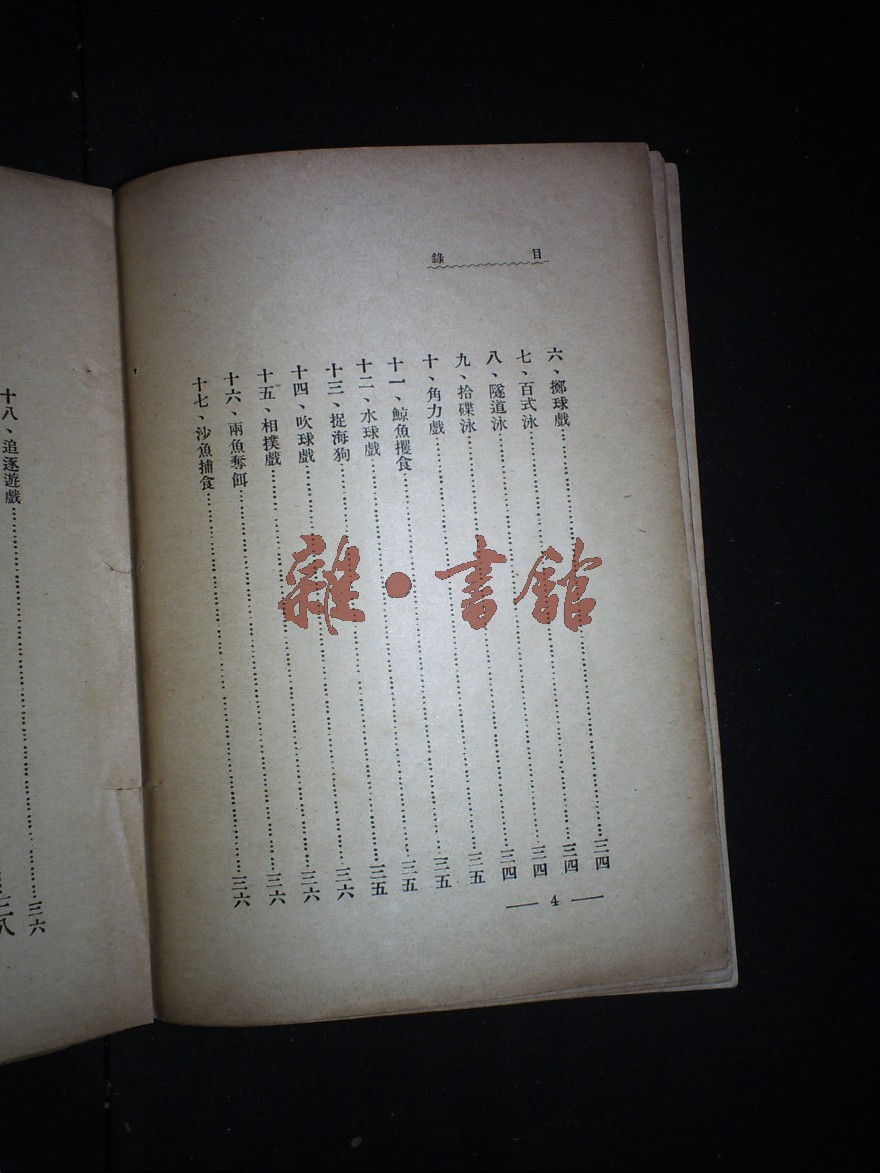 目錄
六、擲球戲……三四
七、百式泳……三四
八、隧道泳……三四
九、拾碟泳……三四
十、角力戲……三五
十一、鯨魚攫食……三五
十二、水球戲……三五
十三、捉海狗……三五
十四、吹球戲……三六
十五、相撲戲……三六
十六、兩魚奪餌……三六
十七、沙魚捕食……三六
— 4 —
十八、追逐遊戲……三六
雜•書館